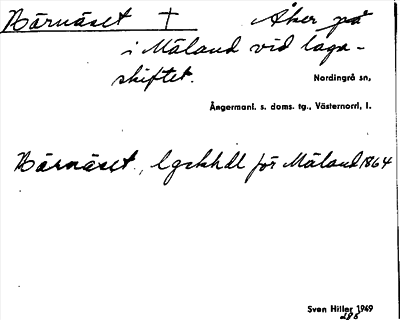 Bärnäset † Åker på
i Mäland vid laga-
skiftet.
Nordingrå sn,
Ångermanl. s. doms. tg., Västernorrl, l.
Bärnäset, lgskhdl för Mäland 1864
Sven Hiller 1949